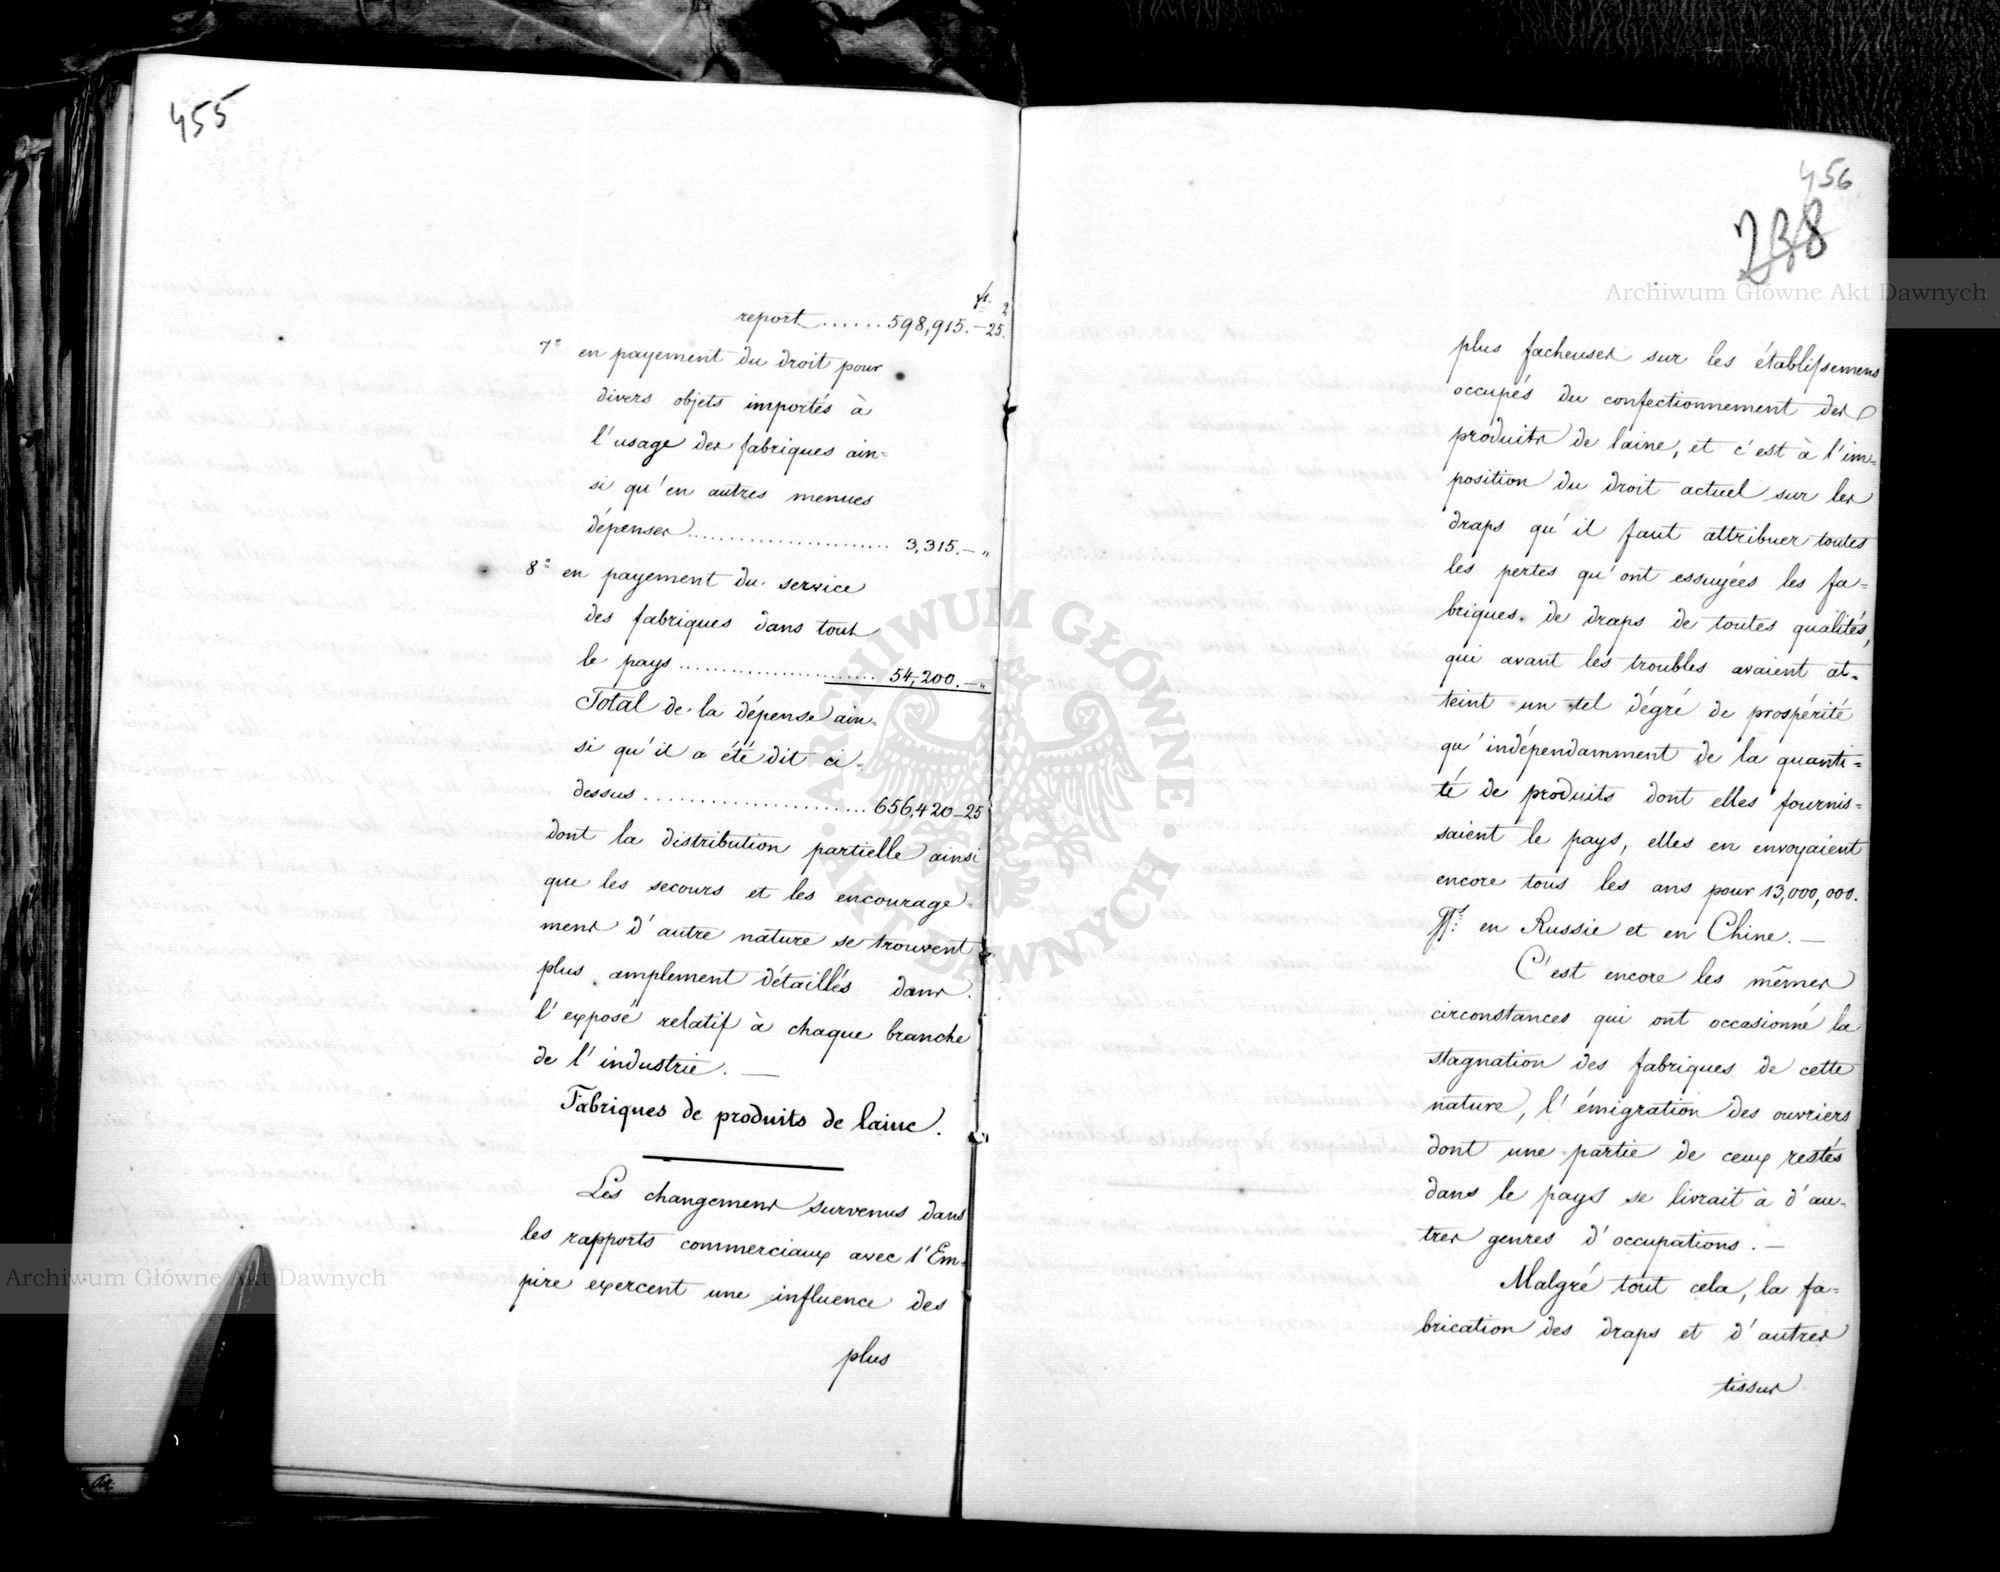 455
fl. 2
report ...... 598,915.—25.
7° en payement du droit pour
divers objets importés à
l'usage des fabriques ain=
si qu'en autres menues
dépenses ........................ 3,315.— "
8° en payement du service
des fabriques dans tout
le pays ........................ 54,200.— "
Total de la dépense ain-
si qu'il a été dit ci-
dessus ........................ 656,420–25
dont la distribution partielle ainsi
que les secours et les encourage-
mens d'autre nature se trouvent
plus amplement détaillés dans
l'exposé relatif à chaque branche
de l'industrie. —
Fabriques de produits de laine.
Les changemens survenus dans
les rapports commerciaux avec l'Em-
pire exercent une influence des
plus
456
238
plus facheuses sur les établissemens
occupés du confectionnement des
produits de laine, et c'est à l'im=
position du droit actuel sur les
draps qu'il faut attribuer toutes
les pertes qu'ont essuyées les fa=
briques de draps de toutes qualités,
qui avant les troubles avaient at-
teint un tel dégré de prospérité
qu'indépendamment de la quanti=
té de produits dont elles fournis=
saient le pays, elles en envoyaient
encore tous les ans pour 13,000,000.
en Russie et en Chine. —
C'est encore les mêmes
circonstances qui ont occasionné la
stagnation des fabriques de cette
nature, l'émigration des ouvriers
dont une partie de ceux restés
dans le pays se livrait à d'au-
tres genres d'occupations. —
Malgré tout cela, la fa=
brication des draps et d'autres
tissus
Archiwum Główne Akt Dawnych
Archiwum Główne Akt Dawnych
ARCHIWUM GŁÓWNE
AKT DAWNYCH